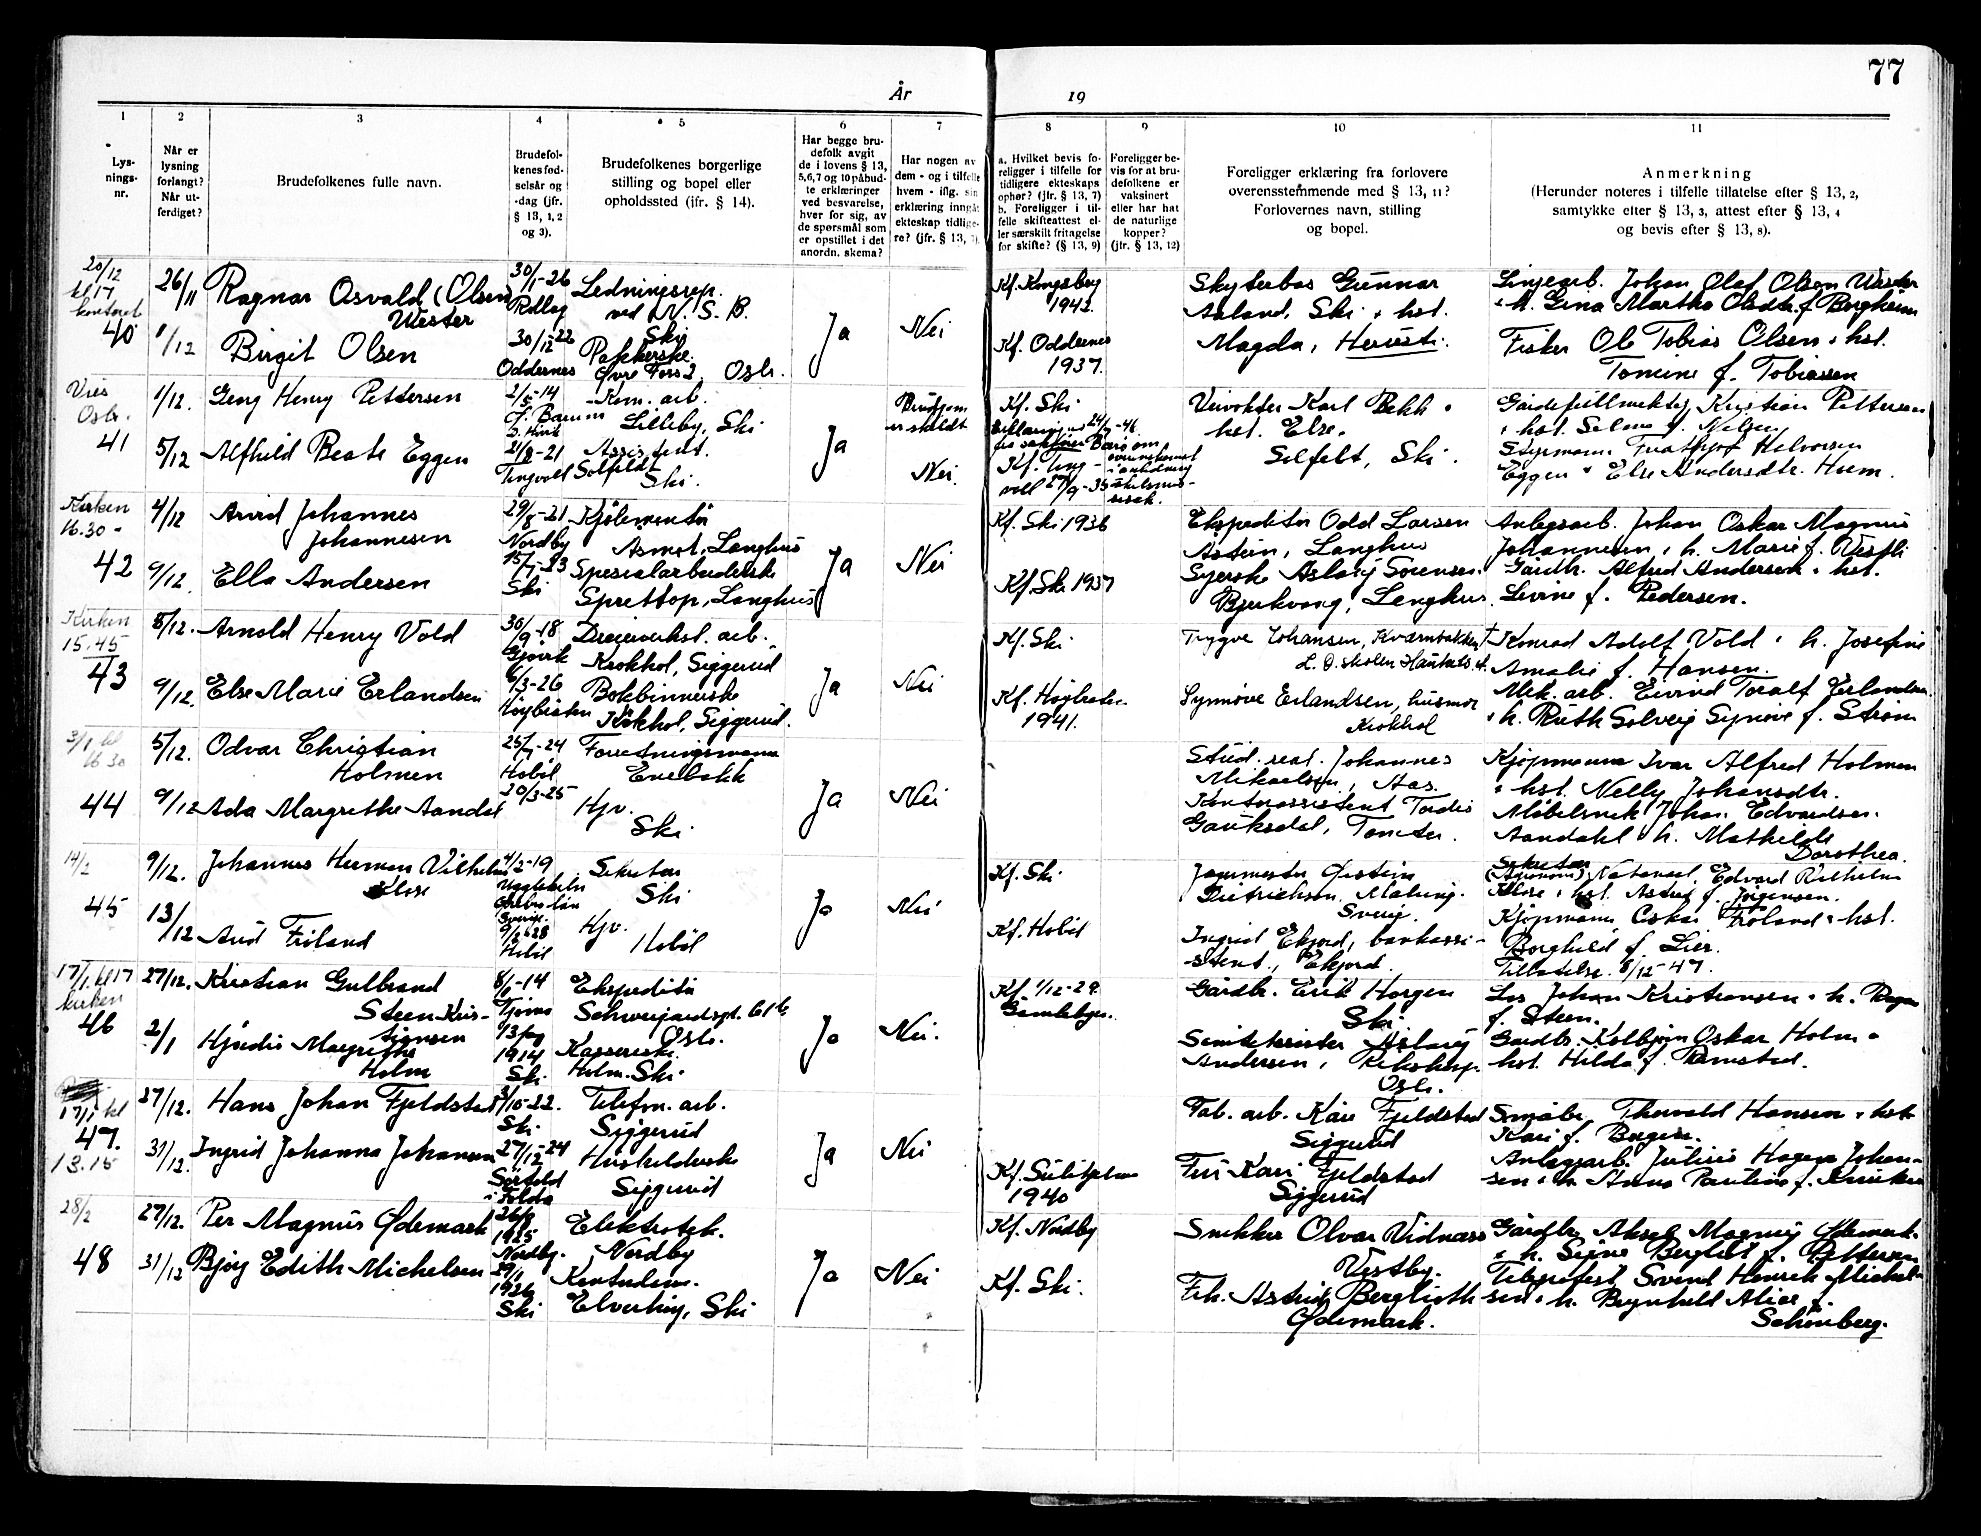 77
År 19
1 2 3 4 5 6 7 8 9 10 11
Lys-
nings-
nr.
Når er
lysning
forlangt?
Når ut-
ferdiget?
Brudefolkenes fulle navn.
Brudefol-
kenes fød-
selsår og
-dag (jfr.
§ 13, 1, 2
og 3).
Brudefolkenes borgerlige
stilling og bopel eller
opholdssted (jfr. § 14).
Har begge bru-
defolk avgit
de i lovens § 13,
5, 6, 7 og 10 påbud-
te erklæringer
ved besvarelse,
hver for sig, av
de spørsmål som
er opstillet i det
anordn. skema?
Har nogen av
dem - og i tilfelle
hvem - iflg. sin
erklæring inngåt
ekteskap tidlige-
re? (jfr. § 13, 7).
a. Hvilket bevis fo-
religger i tilfelle for
tidligere ekteskaps
ophør? (jfr. § 13, 7)
b. Foreligger i til-
felle skifteattest el-
ler særskilt fritagelse
for skifte? (§ 13, 9)
Foreligger be-
vis for at bru-
defolkene er
vaksinert
eller har hat
de naturlige
kopper?
(jfr. § 13, 12)
Foreligger erklæring fra forlovere
overensstemmende med § 13, 11?
Forlovernes navn, stilling
og bopel.
Anmerkning
(Herunder noteres i tilfelle tillatelse efter § 13, 2,
samtykke efter § 13, 3, attest efter § 13, 4
og bevis efter § 13, 8).
20/12
kl 17
kontoret
40
26/11
1/12
Ragnar Osvald (Olsen)
Wester
Birgit Olsen
30/1-26
30/12-22
Oddernes
Ledningsrep.
ved N. S. B.
Ski
Pakkerske.
Øvre Foss 2, Oslo.
Ja
Nei
Kf. Kongsberg
1942.
Kf. Oddernes
1937.
Skyterbas Gunnar
Aaland, Ski, hst.
Magda,
Linjearb. Johan Olaf Olsen Wester
h. Gina Martha Olsdtr. f. Borgheim
Fisker Ole Tobias Olsen, hst.
Tomine f. Tobiassen
Vies
Oslo.
41
1/12.
5/12
Georg Henry Pettersen
Alfhild Beate Eggen
2/5-14
21/8-21
Tingvoll
Kom. arb.
Lilleby, Ski
Assistent.
Solfeldt
Ski.
Ja
Brudgom
er skildt
Nei.
Kf. Ski
Kf. Ting-
voll 27/9-35
Veivokter Karl Bekk
hst. Else.
Solfelt, Ski.
Gårdsfullmektig Kristian Pettersen
hst. Selma f. Nelsen
Styrmann Fridtjof Halvorsen
Eggen, Else Andersdtr. Huem.
Kirken
16.30 -
42
4/12
9/12.
Arvid Johannes
Johannesen
Ella Andersen
29/8-21
Nordby
15/7-23
Ski
Kjølemontør
Asmot, Langhus
Spesialarbeiderske
Sprettop, Langhus
Ja
Nei
Kf. Ski 1936
Kf. Ski 1937
Ekspeditør Odd Larsen
Åsteien, Langhus
Syerske Aslaug Sørensen.
Bjerkvang, Langhus.
Anlegsarb. Johan Oskar Magnus
Johannesen, h. Marie f. Vestli
Gårdbr. Alfred Andersen, hst.
Levine f. Pedersen.
Kirken
15.45
43
8/12.
9/12.
Arnold Henry Vold
Else Marie Erlandsen
30/9-18
Gjøvik
6/3-26
Dreierverkst. arb.
Krokhol, Siggerud
Bokbinnerske
Krokhol, Siggerud.
Ja
Nei
Kf. Ski
Kf.
1941.
Trygve Johansen,
Synnøve Erlandsen, husmor
Krokhol
Konrad Adolf Vold, h. Josefine
Amalie f. Hansen.
Mek. arb. Eivind Toralf Erlandsen
h. Ruth Solveig Synøve f. Strøm
3/1 kl
16.30
44
5/12.
9/12
Odvar Christian
Holmen
Ada Margrethe Aandal
25/7-24
Hobøl
20/3-25
Forretningsmann
Enebakk
Hjv.
Ski
Ja
Nei
Stud. real. Johannes
Mikaelsen, Aas.
Kontorassistent Tordis
Gauksdal, Tomter.
Kjøpmann Ivar Alfred Holmen
hst. Nelly Johansdtr.
Møbelsnek Johan Edvardsen
Aandahl, h. Mathilde
Dorothea.
14/2
45
9/12.
13/12
Johannes Herman Vilhelm
Klose
Aud Frøland
4/2-19
Sverige.
9/2-28
Hobøl
Sekretær
Ski
Hjv.
Hobøl
Ja
Nei
Kf. Ski
Kf. Hobøl
Jegermester Øistein
Dietrichson, Malung.
Sverige.
Ingrid Ekjord, bankassi-
stent, Ekjord.
Sekretær
(Agronom) Natanael Edvard Vilhelm
Klose, hst. Astrid f. Jørgensen.
Kjøpmann Oskar Frøland, hst.
Borghild f. Lier.
Tillatelse 8/12-47.
17/1 kl 17
kirken
46
27/12.
2/1
Kristian Gulbrand
Steen-Kris-
tiansen
Hjørdis Margrethe
Holm
8/1-14
Tjøme
1914
Ski
Ekspeditør
Schweigaardsgt. 61 b
Oslo.
Kassererske.
Holm. Ski.
Ja
Nei.
Kf. 1/12-29
Gamlebyen.
Gårdbr. Erik Horgen
Ski.
Aslaug
Andersen, Rikshosp.
Oslo.
Los Johan Kristiansen, h. Ragna
f. Steen.
Gårdbr. Kolbjørn Oskar Holm
hst. Hilda f. Ramstad.
17/1 kl
47.
13.15
27/12.
31/12.
Hans Johan Fjeldstad
Ingrid Johanna Johansen
/10-22.
Ski
27/12-24
Sørfold
i Folda
Telefon. arb.
Siggerud
Husholderske
Siggerud
Ja
Nei
Kf. Sulitjelma
1940
Fab. arb. Kåre Fjeldstad
Siggerud
Fru Kari Fjeldstad
Siggerud
Småbr. Thorvald Hansen, hst.
Kari f. Bergem.
Anlegsarb. Julius Hagen Johan-
sen, h. Anna Pauline f.
28/2
48
27/12.
31/12
Per Magnus Ødemark
Bjørg Edith Michelsen
1925
Nordby.
29/1
1926
Ski
Elektrotek.
Nordby
Kontordame.
Elverhøy, Ski
Ja
Nei
Kf. Nordby
Kf. Ski.
Snekker Olvar Vidnæs
Vestby.
Frk. Astrid Bergljoth
Ødemark.
Gårdbr. Aksel Magnus Ødemark.
h. Signe Bergljot f. Pettersen
Telegrafest. Svend Henrik Michel-
sen, h. Bergnhild Alise f.
Schønberg.